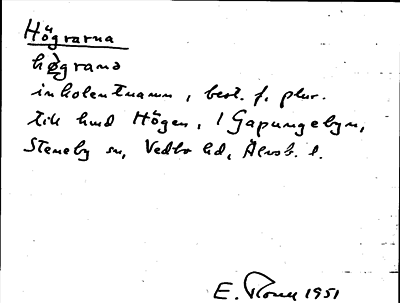 Högrarna
hø̀grana
inkolentnamn, best. f. plur.
till hmd Högen, i Gapungebyn,
Steneby sn, Vedbo hd, Älvsb. l.
E. 1951